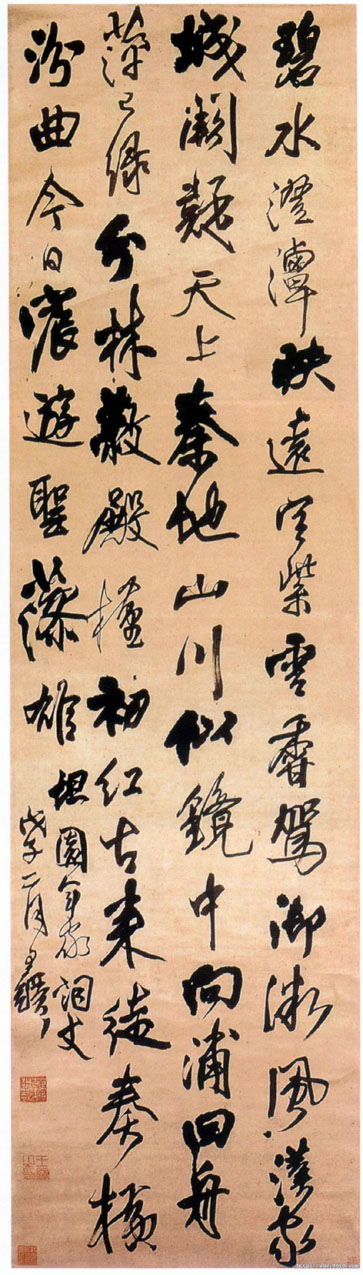 碧水澄潭映遠空紫雲香駕御微風漢家
城闕疑天上秦地山川似鏡中向浦回舟
萍已綠分林蔽殿槿初紅古来徒奏橫
汾曲今日宸遊聖藻雄 坦園年家詞丈
戊子二月王鐸